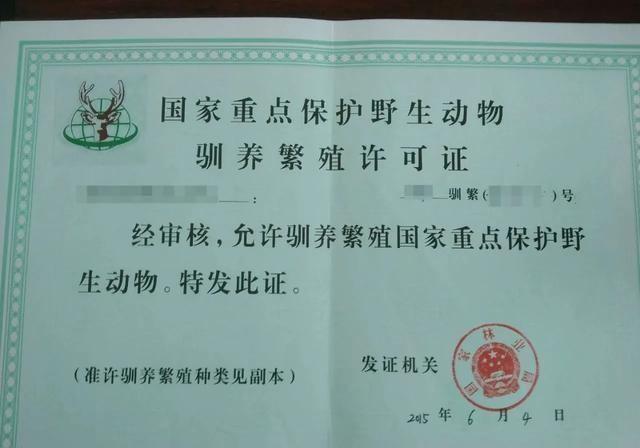 国家重点保护野生动物
驯养繁殖许可证
: 驯繁( )号
经审核,允许驯养繁殖国家重点保护野
生动物。特发此证。
(准许驯养繁殖种类见副本)
发证机关
国家林业局
2015年6月4日